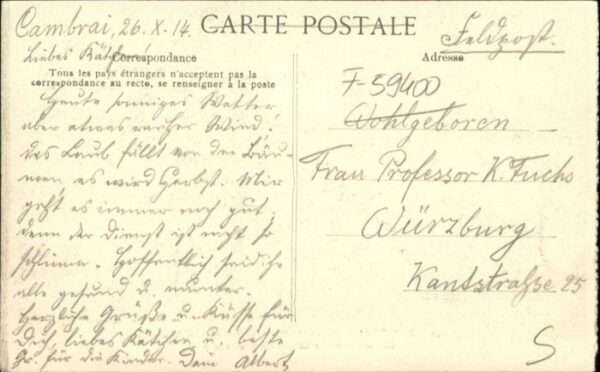 Cambrai, 26.X.14.
CARTE POSTALE
Feldpost.
Liebes Kätchen!
Correspondance
Adresse
Tous les pays étrangers n'acceptent pas la
correspondance au recto, se renseigner à la poste
Heute sonniges Wetter
aber etwas rauher Wind!
Das Laub fällt von den Bäu-
men, es wird Herbst. Mir
geht es immer noch gut,
denn der Dienst ist nicht so
schlimm. Hoffentlich seid ihr
alle gesund u. munter.
Herzliche Grüße u. Küsse für
Dich, liebes Kätchen u. beste
Gr. für die Kinder. Dein Albert
F-59400
Wohlgeboren
Frau Professor K. Fuchs
Würzburg
Kantstraße 25
S